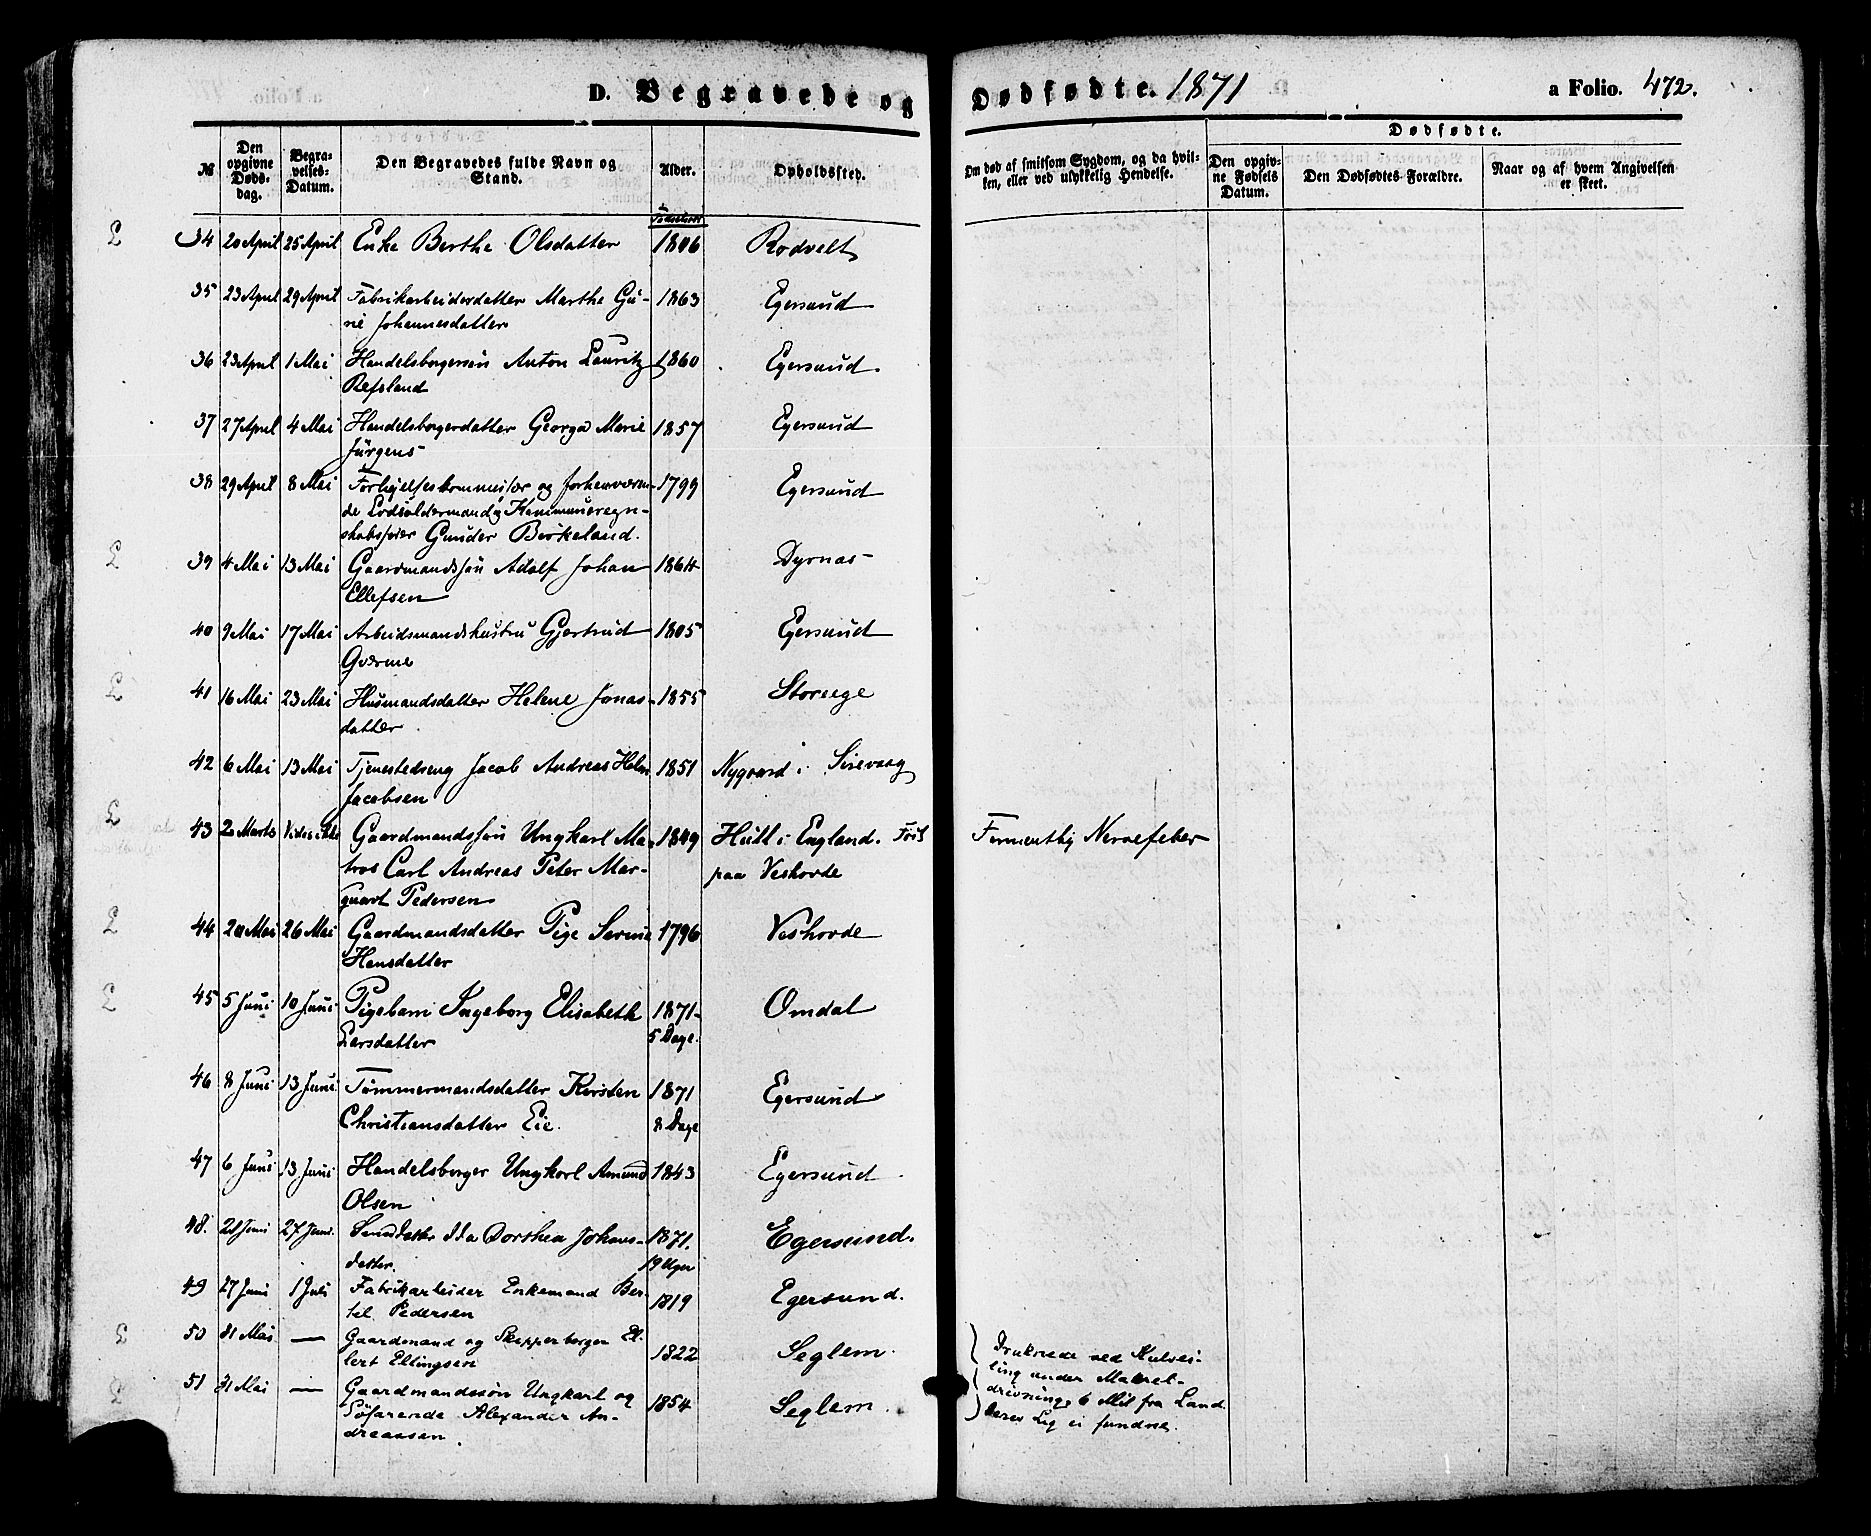 D. Begravede og Dødfødte. 1871 a Folio. 472.
Dødfødte.
№
Den opgivne Døds-dag.
Begra-velses-Datum.
Den Begravedes fulde Navn og Stand.
Alder.
Opholdssted.
Om død af smitsom Sygdom, og da hvil-ken, eller ved ulykkelig Hendelse.
Den opgiv-ne Fødsels Datum.
Den Dødfødtes Forældre.
Naar og af hvem Angivelsen er skeet.
34 20 April 25 April Enke Berthe Olsdatter 1806 Rodvelt
35 23 April 29 April Fabrikarbeiderdatter Marthe Gu- 1863 Egersund
rie Johannesdatter
36 23 April 1 Mai Handelsborgersøn Anton Lauritz 1860 Egersund.
Refsland
37 27 April 4 Mai Handelsborgerdatter Georga Marie 1857 Egersund
Jürgens
38 29 April 8 Mai Forligelseskommissær og forhenværen- 1799 Egersund
de Lodsoldermand og Kommuneregn-
skabsfører Gunder Birkeland.
39 4 Mai 13 Mai Gaardmandssøn Adolf Johan 1864 Dyrnas
Ellefsen
40 9 Mai 17 Mai Arbeidsmandshustru Gjertrud 1805 Egersund
Gværne
41 16 Mai 23 Mai Husmandsdatter Helene Jonas- 1855 Storeege
datter.
42 6 Mai 13 Mai Tjenestedreng Jacob Andreas 1851 Nygaard i Sirevaag
Jacobsen
43 2 Marts Vides ikke Gaardmandssøn Ungkarl Ma- 1849 Hull i England. Født Fermentlig Nervefeber
tros Carl Andreas Peter Mar- paa Veshovde
quart Pedersen
44 20 Mai 26 Mai Gaardmandsdatter Pige Serine 1796 Veshovde
Hansdatter
45 5 Juni 10 Juni Pigebarn Ingeborg Elisabeth 1871- Omdal
Larsdatter 5 Dage.
46 8 Juni 13 Juni Tømmermandsdatter Kirsten 1871 Egersund
Christiansdatter Eie. 8 Dage
47 6 Juni 13 Juni Handelsborger Ungkarl Amund 1843 Egersund
Olsen
48. 21 Juni 27 Juni Ida Dorthea Johans- 1871. Egersund.
datter. 19 Uger
49 27 Juni 1 Juli Fabrikarbeider Enkemand Ber- 1819 Egersund.
tel Pedersen
50 31 Mai — Gaardmand og Skipperborger El- 1822 Seglem. Druknede ved Kulvei-
lert Ellingsen ling under Makrel-
51 31 Mai — Gaardmandssøn Ungkarl og 1854 Seglem. drivning, 6 Mil fra Land
Søfarende Alexander An- deres Lig ei fundne.
dreassen.